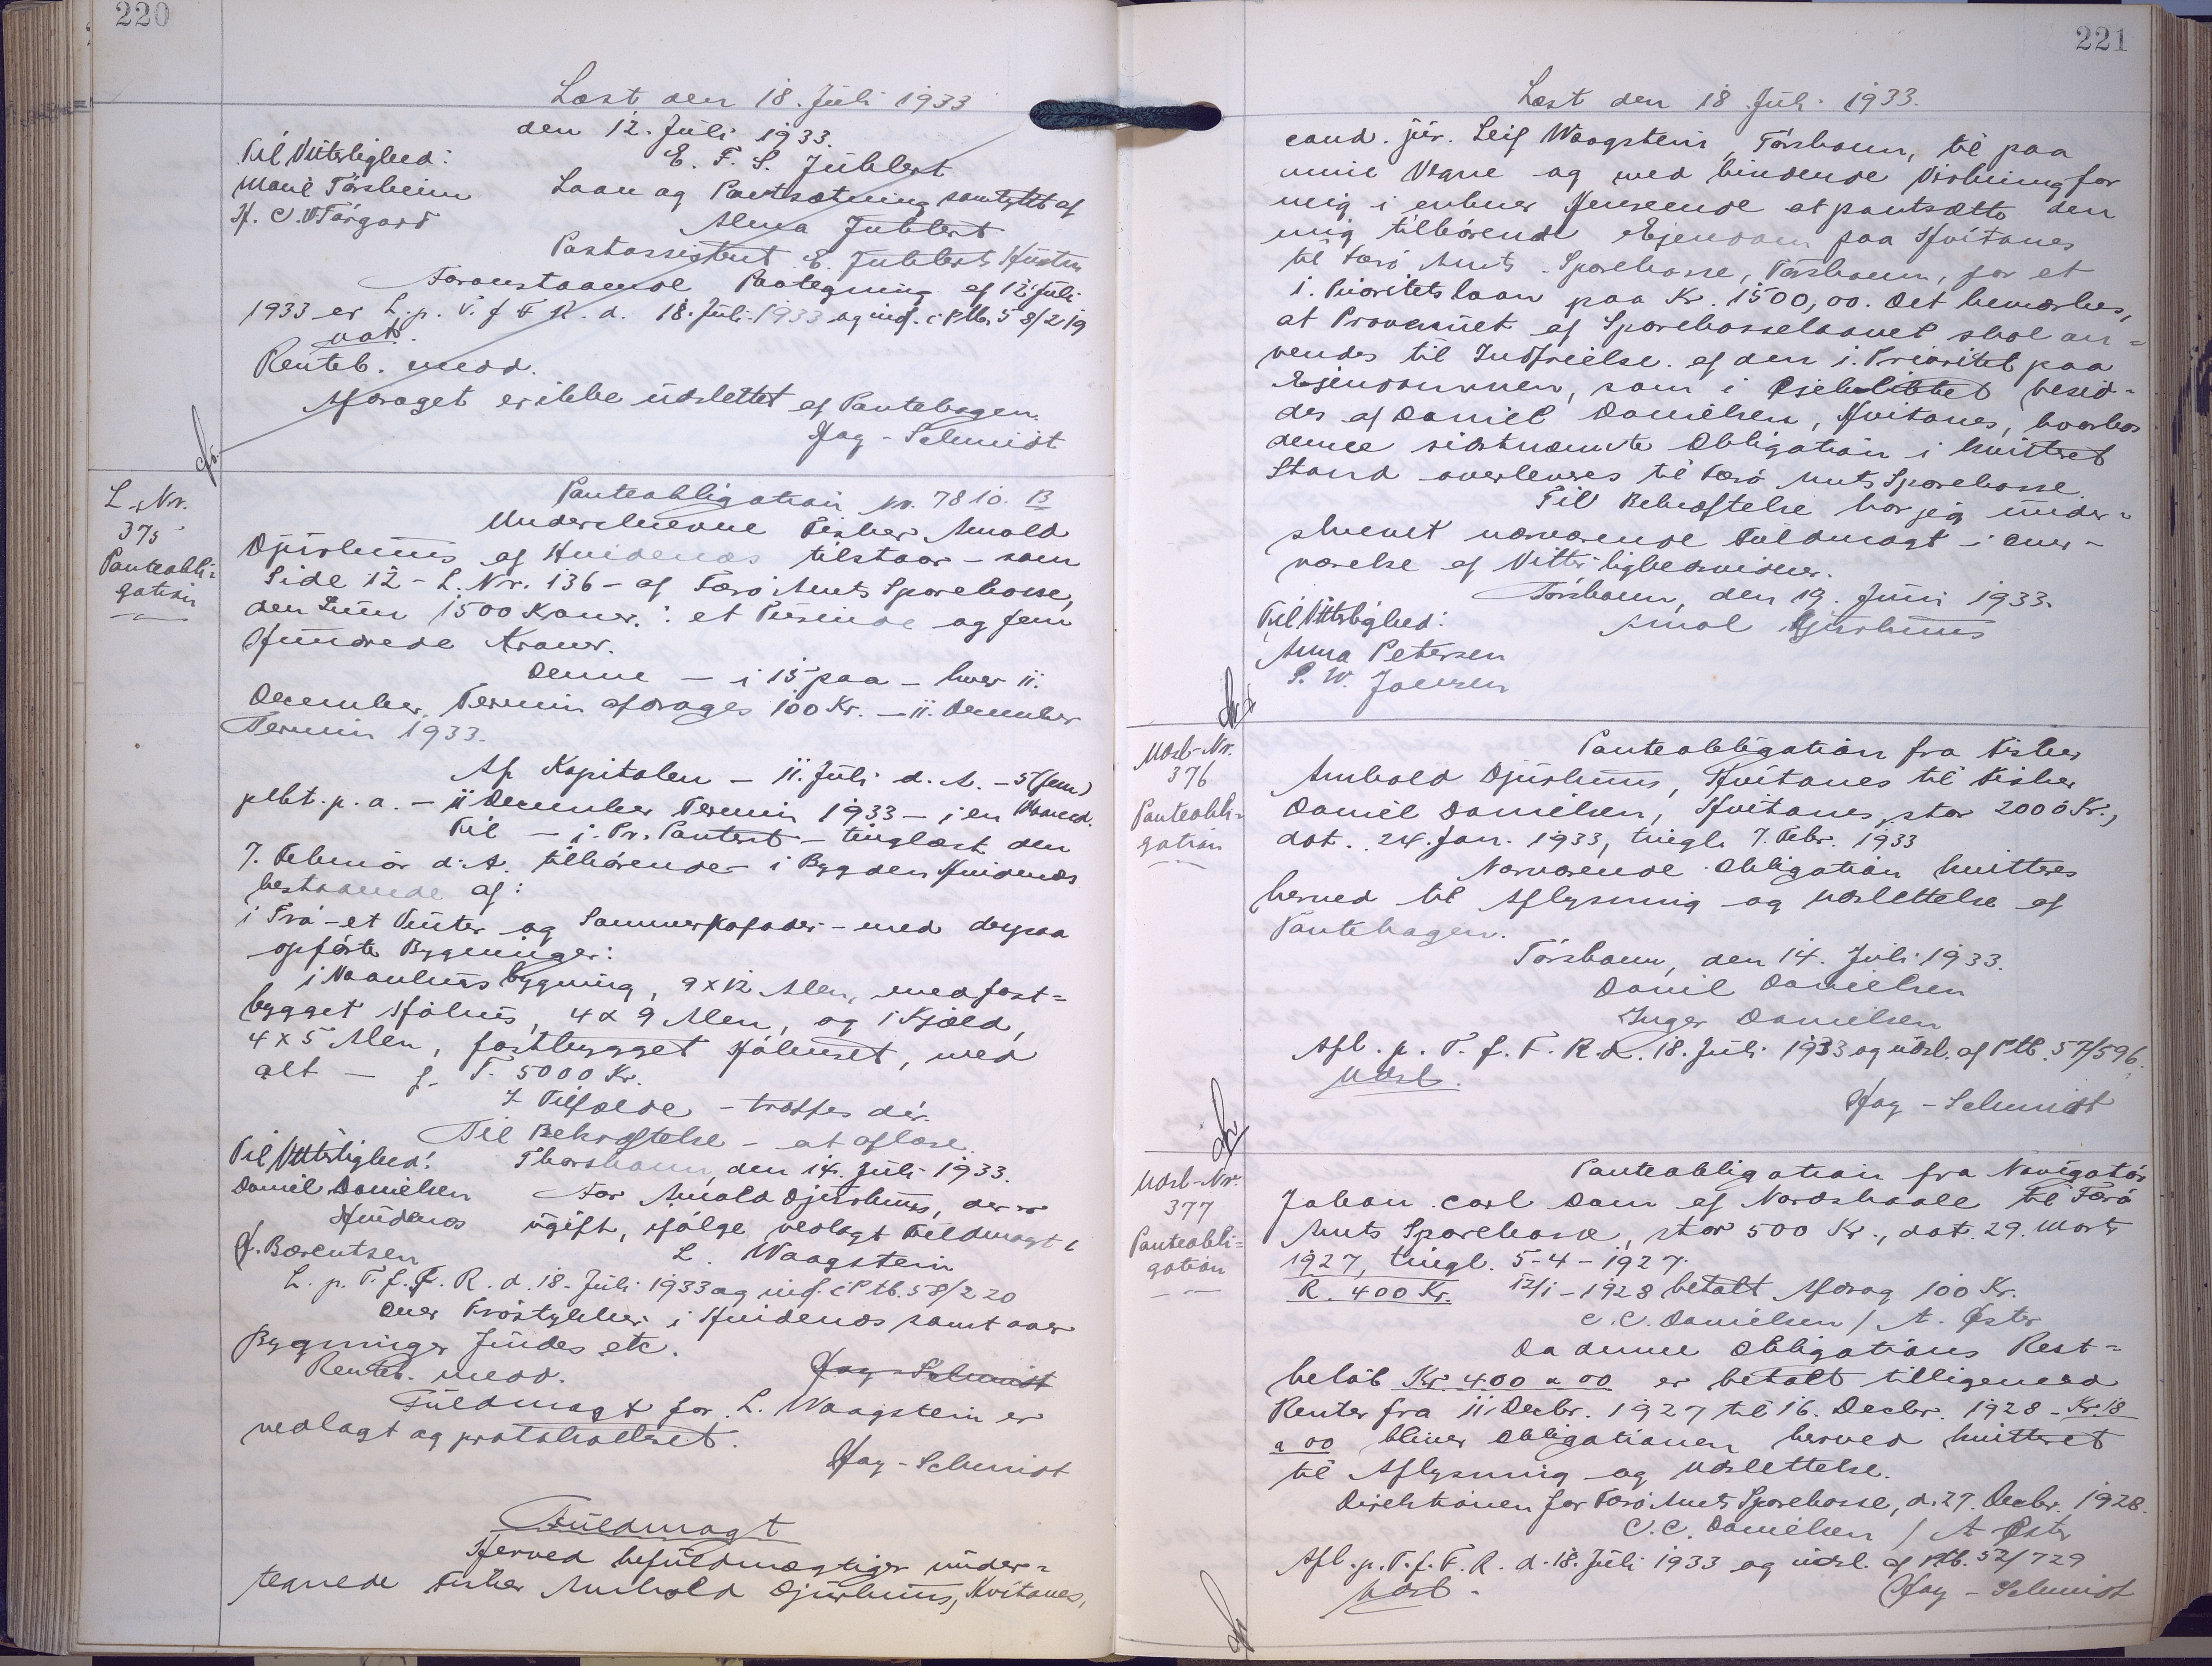 220
Læst den 18. Juli 1933
den 12. Juli 1933.
Til Vitterlighed:
E. F. S. Juhlert
Marie Tórsheim
Laan og Pantsætning samtykt af
H. C. W Tórgard
Alma Juhlert
Postassistent E. Juhlerts Hustru
Foranstaaende Paategning af 12 Juli
1933 er L. p. T. f F R. d. 18. Juli 1933 og indf. i Ptb. 58/219
not.
Renteb. medd.
Afdraget er ikke udslettet af Pantebogen.
Hag-Schmidt
L. Nr.
375
Panteobli=
gation
Panteobligation nr. 7810. B
Underskrevne Fisker Arnold
Djurhuus af Hvidenæs tilstaar - som
Side 12 - L. Nr. 136 - af Færø Amts Sparekasse,
den Sum 1500 Kroner: et Tusinde og fem
Hundrede Kroner.
Denne - i 15 paa - hver 11.
December Termin afdrages 100 Kr. - 11. December
Termin 1933.
Af Kapitalen - 11. Juli d. A. - 5 (fem)
pCt. p. a. - 11 December Termin 1933 - i en Maaned.
Til - 1. Pr. Panteret - tinglæst den
7. Februar d. A. tilhørende - i Bygden Hvidenæs
bestaaende af:
i Trø - et Vinter og Sommer - med derpaa
opførte Bygninger:
1 Vaaningsbygning, 9 x 12 Alen, med fast=
bygget Hjálhus, 4 x 9 Alen, og 1 Kjæld,
4 x 5 Alen, fastbygget Hjálhuset, med
alt - f. T. 5000 Kr.
I Tilfælde - træffes dér.
Til Bekræftelse - at aflæse.
Til Vitterlighed:
Thorshavn, den 14. Juli 1933.
Daniel Danielsen
For Arnold Djurhuus, der er
Hvidenæs
ugift, ifølge vedlagt Fuldmagt
J. Bærentsen
L. Waagstein
L. p. T. f. F. R. d. 18. Juli 1933 og indf. i Ptb. 58/220
over Trøstykker i Hvidenæs samt over
Bygninger findes etc.
Renteb. medd.
Hag-Schmidt
Fuldmagt for L. Waagstein er
vedlagt og protokolleret.
Hag-Schmidt
Fuldmagt
Herved befuldmægtiger under=
tegnede Fisker Arnhold Djurhuus, Kvítanes,
221
Læst den 18. Juli 1933.
cand. jur. Leif Waagstein, Tórshavn, til paa
mine Vegne og med bindende Virkning for
mig i enhver Henseende at pantsætte den
mig tilhørende Ejendom paa Hvítanes
til Færø Amts Sparekasse, Tórshavn, for et
1. Prioritetslaan paa Kr. 1500,00. Det bemærkes,
at Provenuet af Sparekasselaanet skal an=
vendes til Indfrielse af den 1. Prioritet paa
Ejendommen, som i Øjeblikket besid=
des af Daniel Danielsen, Hvítanes, hvorhos
denne sidstnævnte Obligation i kvitteret
Stand overleveres til Færø Amts Sparekasse.
Til Bekræftelse har jeg under=
skrevet nærværende Fuldmagt i Over=
værelse af Vitterlighedsvidner.
Tórshavn, den 19. Juni 1933.
Til Vitterlighed:
Arnol Djurhuus
Anna Petersen
P. W. Joensen
Udsl-Nr.
376
Panteobli=
gation
Panteobligation fra Fisker
Arnhold Djurhuus, Hvítanes til Fisker
Daniel Danielsen, Hvítanes, stor 2000 Kr.,
dat. 24. Jan. 1933, tingl. 7. Febr. 1933
Nærværende Obligation kvitteres
herved til Aflysning og Udslettelse af
Pantebogen.
Tórshavn, den 14. Juli 1933.
Daniel Danielsen
Inger Danielsen
Afl. p. T. f. F. R. d. 18. Juli 1933 og udsl. af Ptb. 57/596.
Udsl.
Hag-Schmidt
Udsl-Nr.
377
Panteobli=
gation
Panteobligation fra Navigatør
Johan Carl Dam af Nordskaale til Færø
Amts Sparekasse, stor 500 Kr., dat. 29. Marts
1927, tingl. 5-4-1927.
R. 400 Kr. 12/1-1928 betalt Afdrag 100 Kr.
C. C. Danielsen / A. Øster
Da denne Obligations Rest=
beløb Kr. 400 a 00 er betalt tilligemed
Renter fra 11. Decbr. 1927 til 16. Decbr. 1928 - Kr. 18
a 00 bliver Obligationen herved kvitteret
til Aflysning og Udslettelse.
Direktionen for Færø Amts Sparekasse, d. 27. Decbr. 1928.
C. C. Danielsen / A Øster
Afl. p. T. f. F. R. d. 18. Juli 1933 og udsl. af Ptb. 52/729
Udsl.
Hag-Schmidt